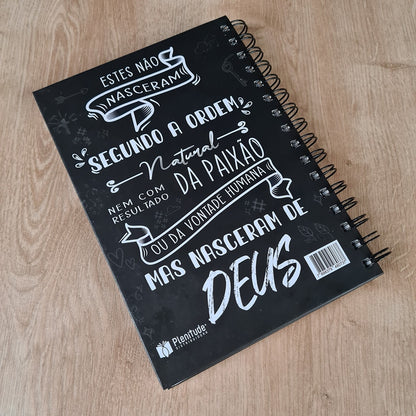 ESTES NÃO
NASCERAM
SEGUNDO A ORDEM
Natural
DA PAIXÃO
NEM COM
RESULTADO
OU DA VONTADE HUMANA
MAS NASCERAM DE
DEUS
Plenitude